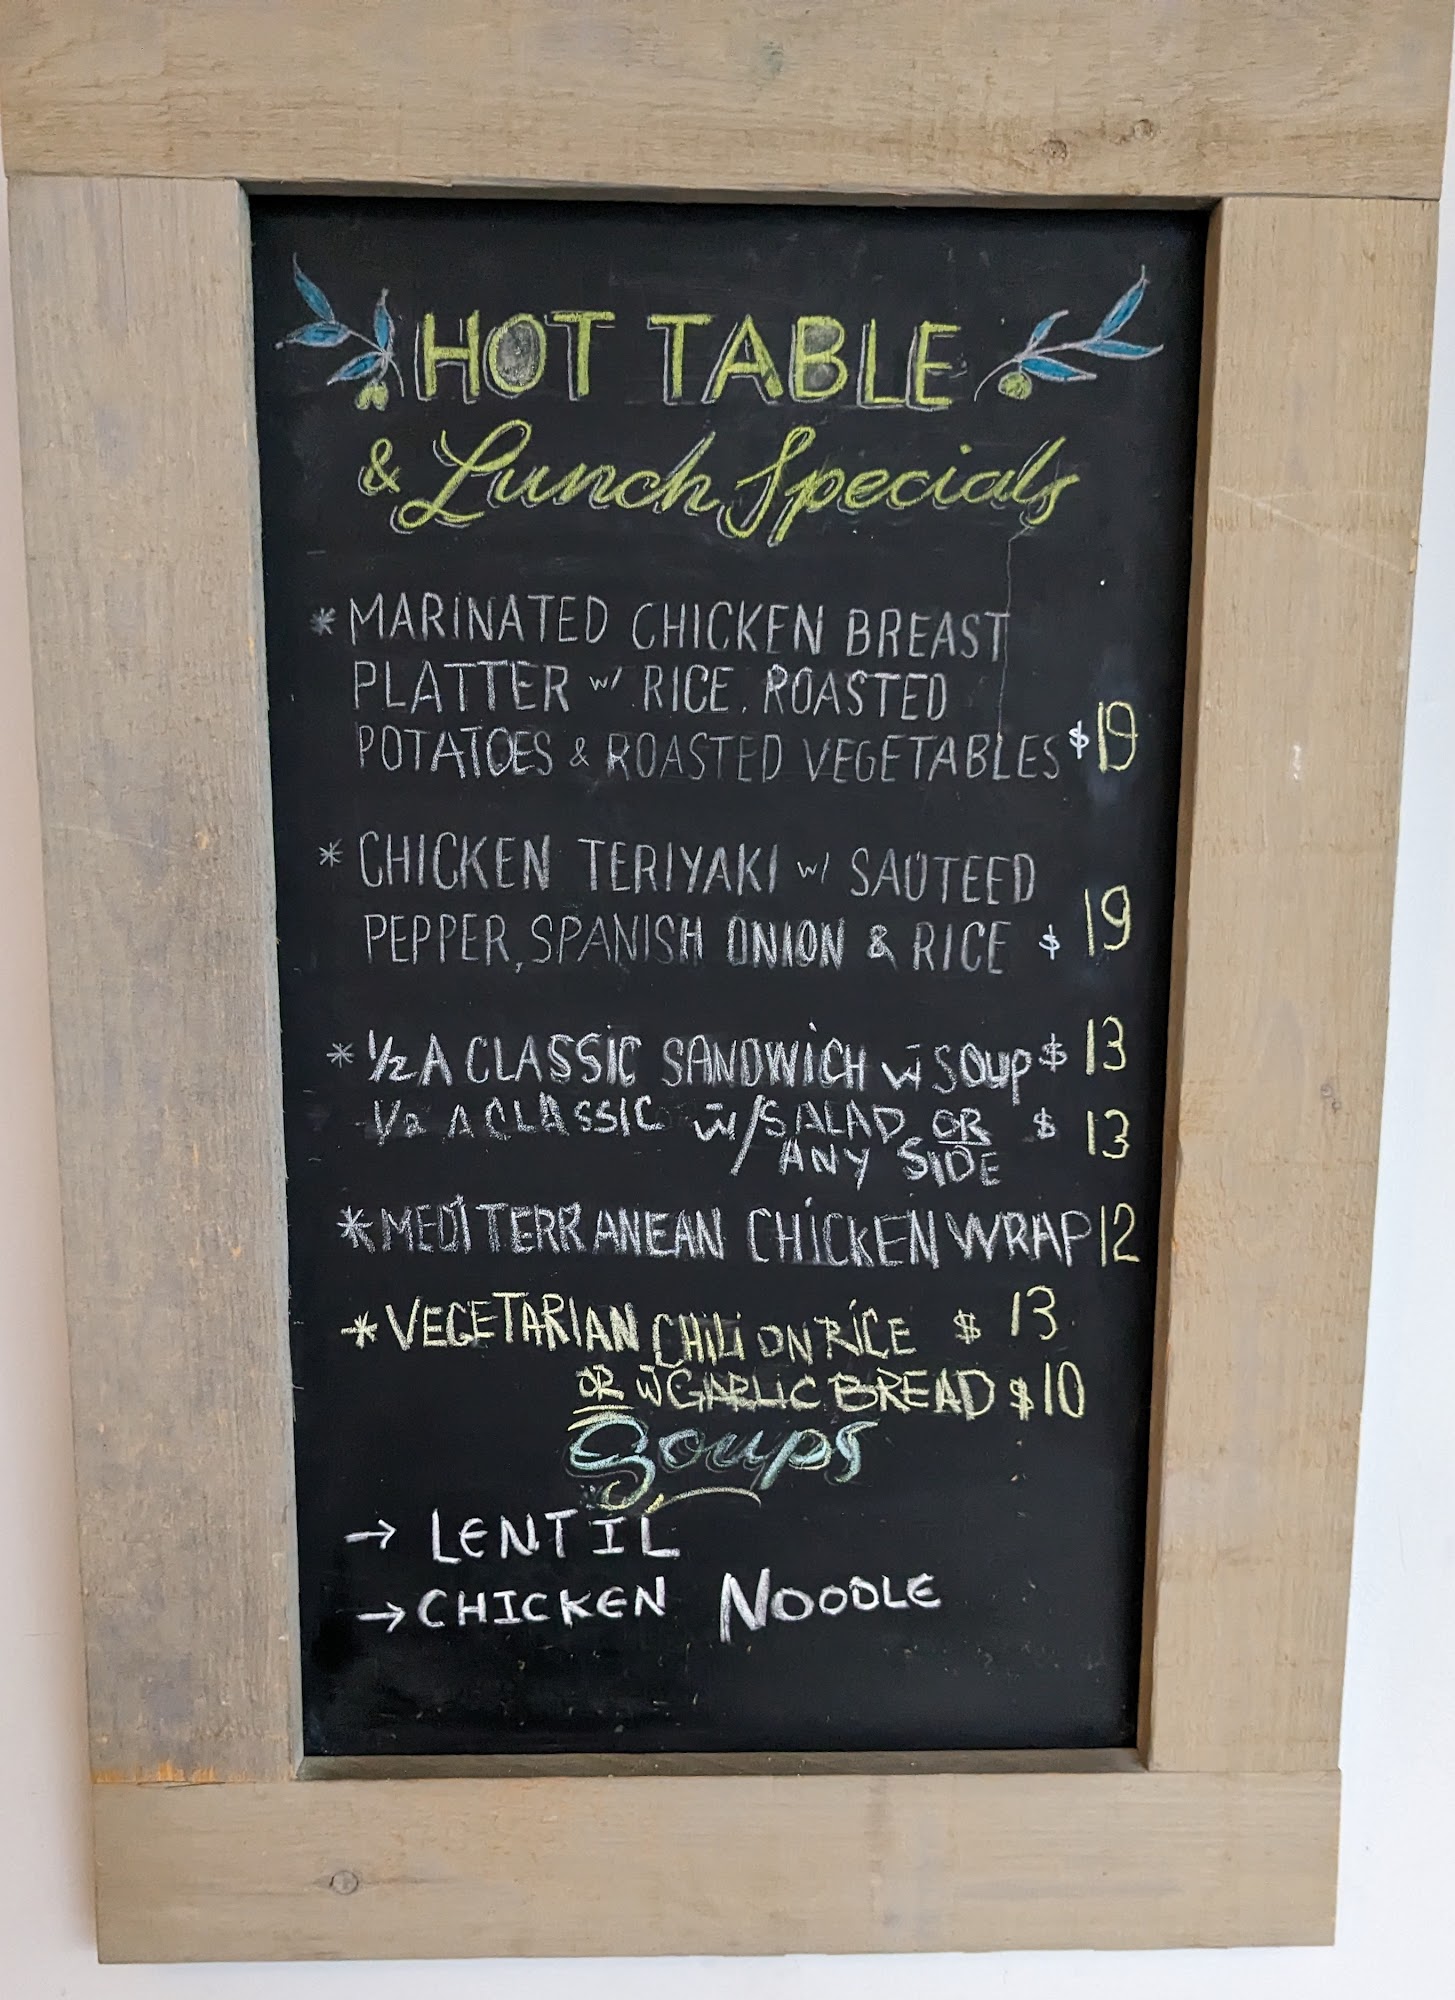 HOT TABLE
& Lunch Specials
* MARINATED CHICKEN BREAST
PLATTER w/ RICE, ROASTED
POTATOES & ROASTED VEGETABLES $19
* CHICKEN TERIYAKI w/ SAUTEED
PEPPER, SPANISH ONION & RICE $ 19
* 1/2 A CLASSIC SANDWICH w SOUP $ 13
1/2 A CLASSIC w/ SALAD OR $ 13
ANY SIDE
* MEDITERRANEAN CHICKEN WRAP 12
* VEGETARIAN CHILI ON RICE $ 13
OR w GARLIC BREAD $10
Soups
→ LENTIL
→ CHICKEN NOODLE